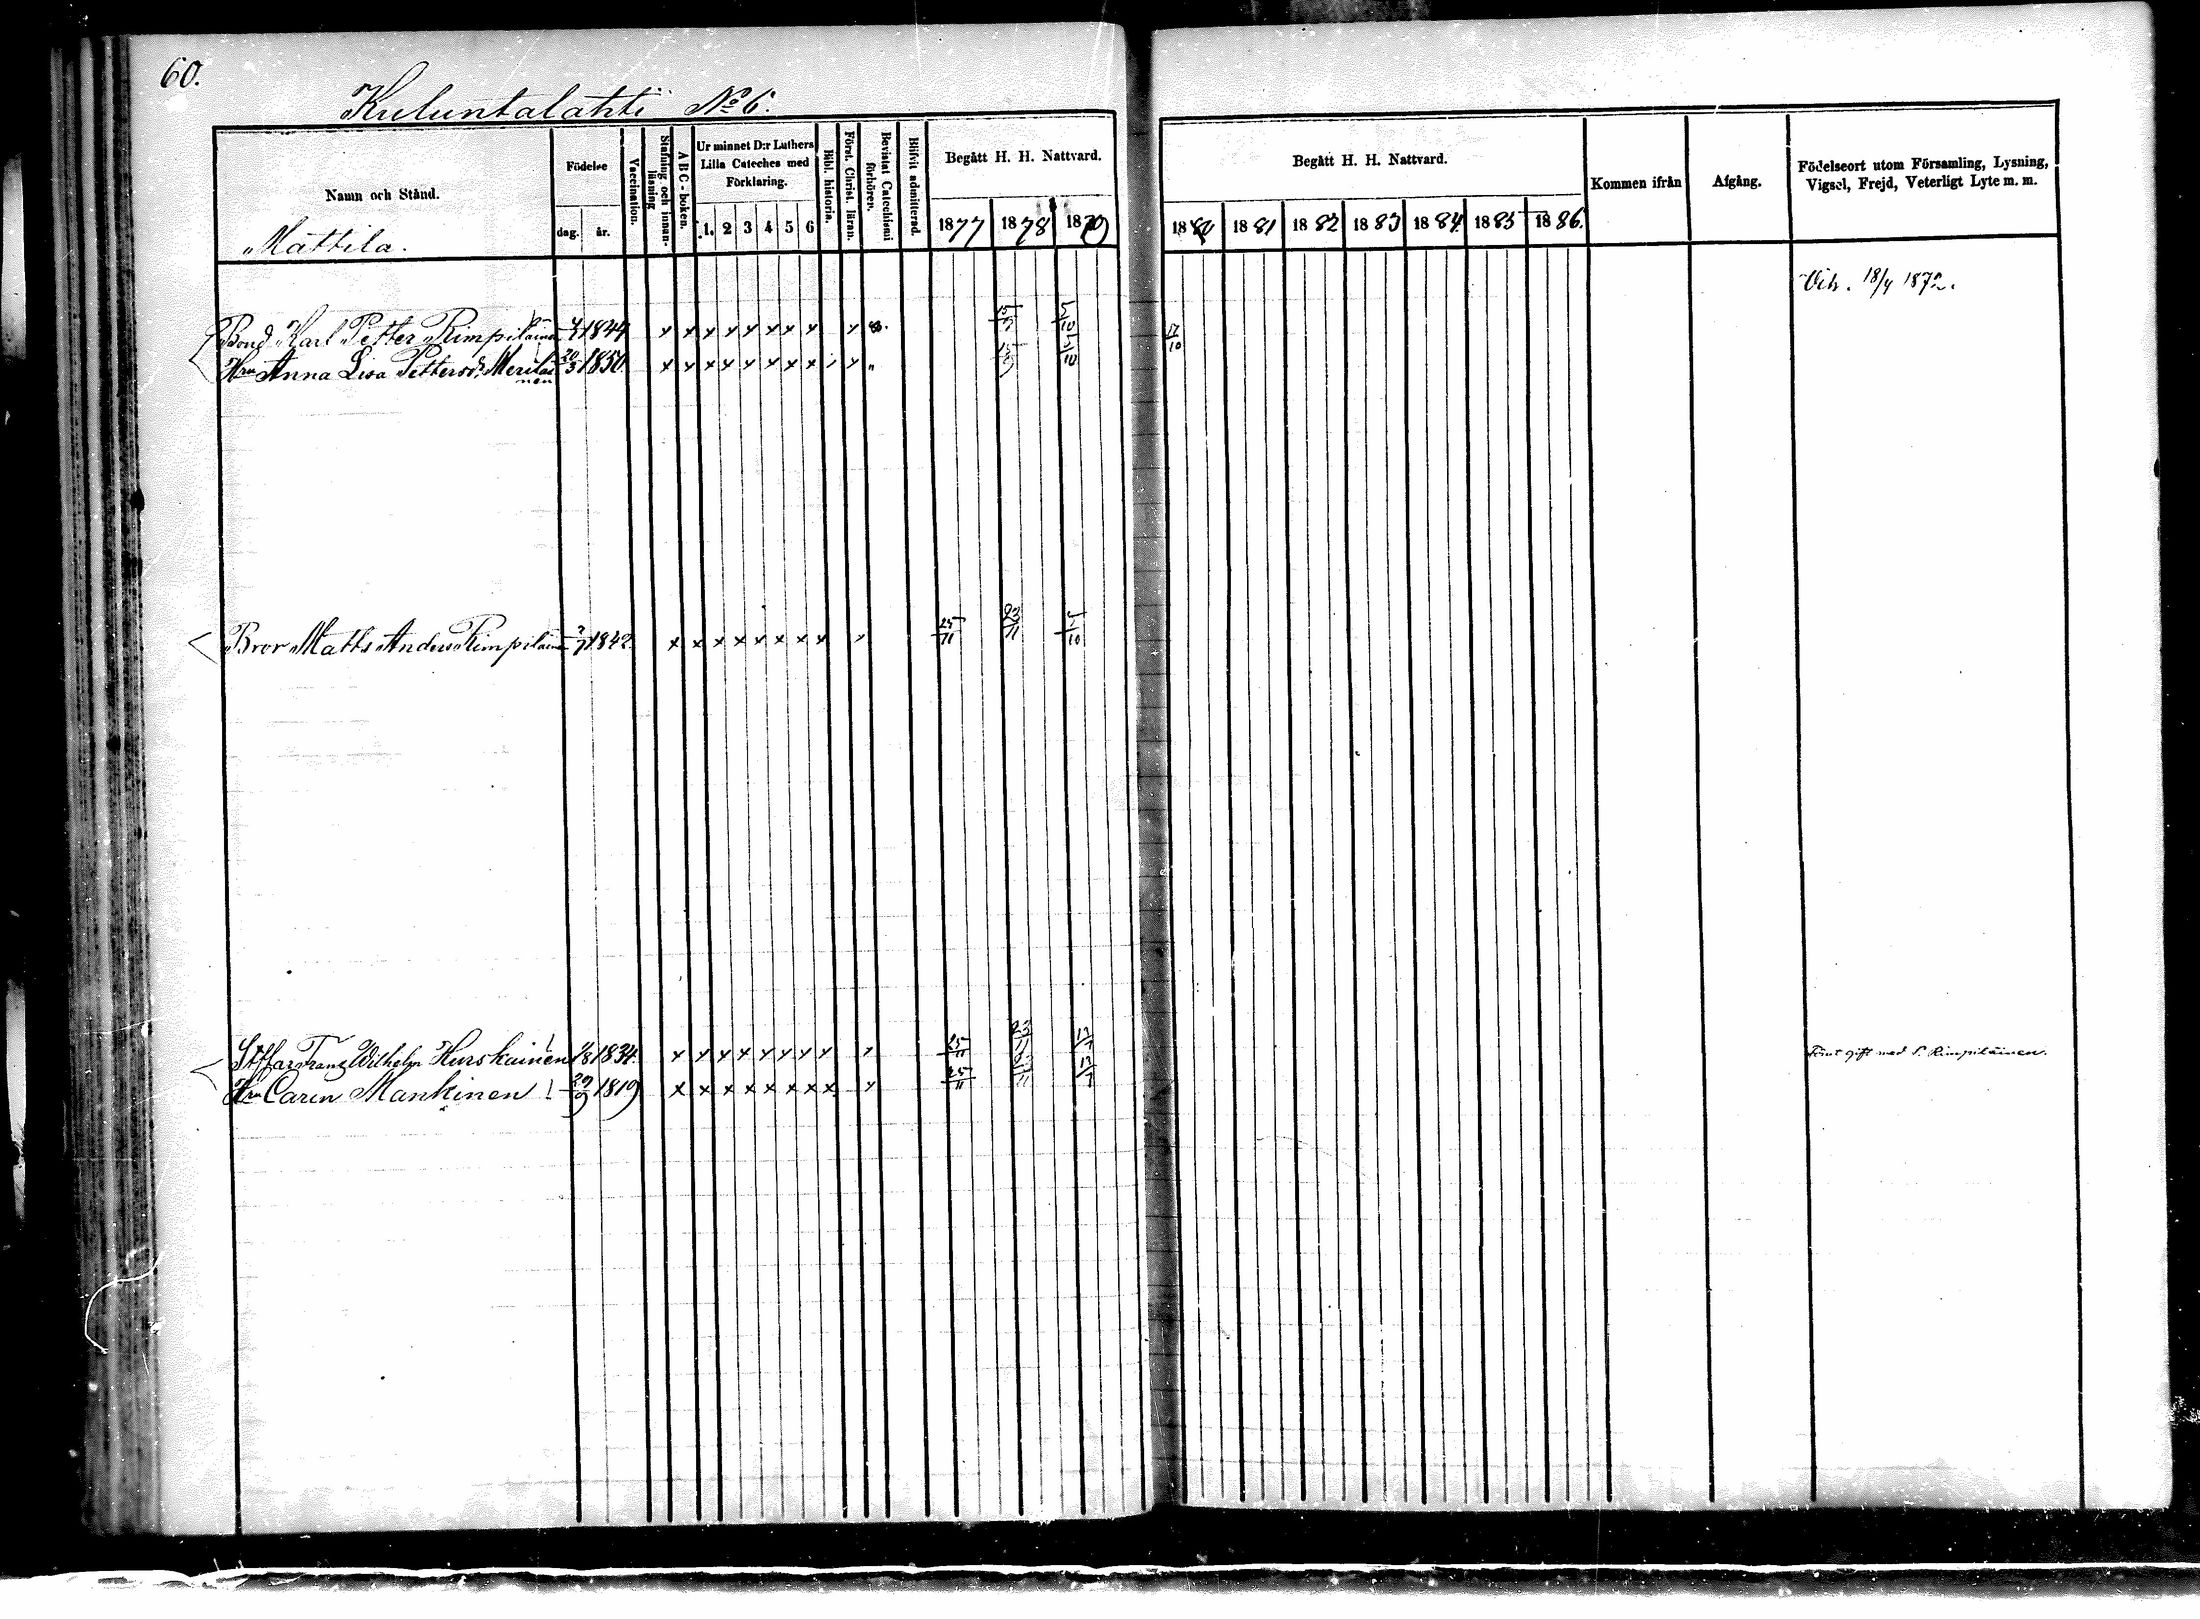 60.
Kuluntalahti No 6.
Namn och Stånd.
Mattila.
Födelse
dag. år.
Vaccination.
Stafning och innanläsning
A B C-boken.
Ur minnet D:r Luthers
Lilla Cateches med
Förklaring.
1. 2 3 4 5 6
Bibl. historia.
Först. Christ. läran.
Bevistat Catechismi förhören.
Blifvit admitterad.
Begått H. H. Nattvard.
1877 1878 1879
Begått H. H. Nattvard.
1880 1881 1882 1883 1884 1885 1886.
Kommen ifrån
Afgång.
Födelseort utom Församling, Lysning,
Vigsel, Frejd, Veterligt Lyte m. m.
18/4 1872.
Bond Karl Petter Rimpiläinen 1844 x x x x x x x x 15 5/10 17/10
Hru Anna Lisa Pettersdr Meriläinen 20/3 1850 x x x x x x x x 15 5/10
Bror Matts Anders Rimpiläinen 1842 x x x x x x x x 25/11 23/11 5/10
Stffar Franz Wilhelm Hurskainen 1/8 1834. x x x x x x x x 25/11 23/11
Hru Carin Mankinen 29/9 1819 x x x x x x x x 25/11 23/11
Förut gift med P. Rimpiläinen.